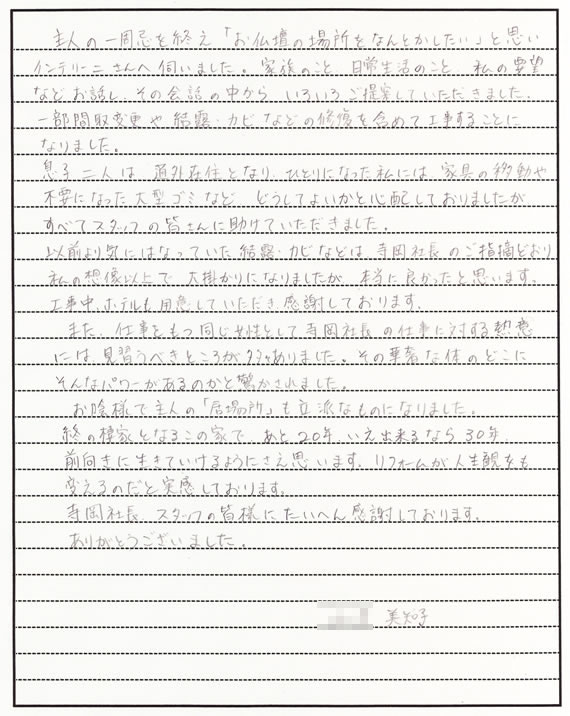 主人の一周忌を終え「お仏壇の場所をなんとかしたい」と思い
インテリーニさんへ伺いました。家族のこと 日常生活のこと 私の要望
などお話し、その会話の中から いろいろご提案していただきました。
一部間取変更や結露・カビなどの修復を含めて工事することに
なりました。
息子二人は 道外在住となり、ひとりになった私には、家具の移動や
不要になった大型ゴミなど、どうしてよいかと心配しておりましたが
すべてスタッフの皆さんに助けていただきました。
以前より気にはなっていた結露・カビなどは 寺岡社長のご指摘どおり
私の想像以上で 大掛かりになりましたが 本当に良かったと思います。
工事中、ホテルも用意していただき感謝しております。
また、仕事をもつ同じ女性として寺岡社長の仕事に対する熱意
には 見習うべきところが多々ありました。その華奢な体のどこに
そんなパワーがあるのかと驚かされました。
お陰様で主人の「居場所」も立派なものになりました。
終の棲家となるこの家で、あと20年、いえ出来るなら30年
前向きに生きていけるようにさえ思います。リフォームが人生観をも
変えるのだと実感しております。
寺岡社長、スタッフの皆様にたいへん感謝しております。
ありがとうございました。
美知子